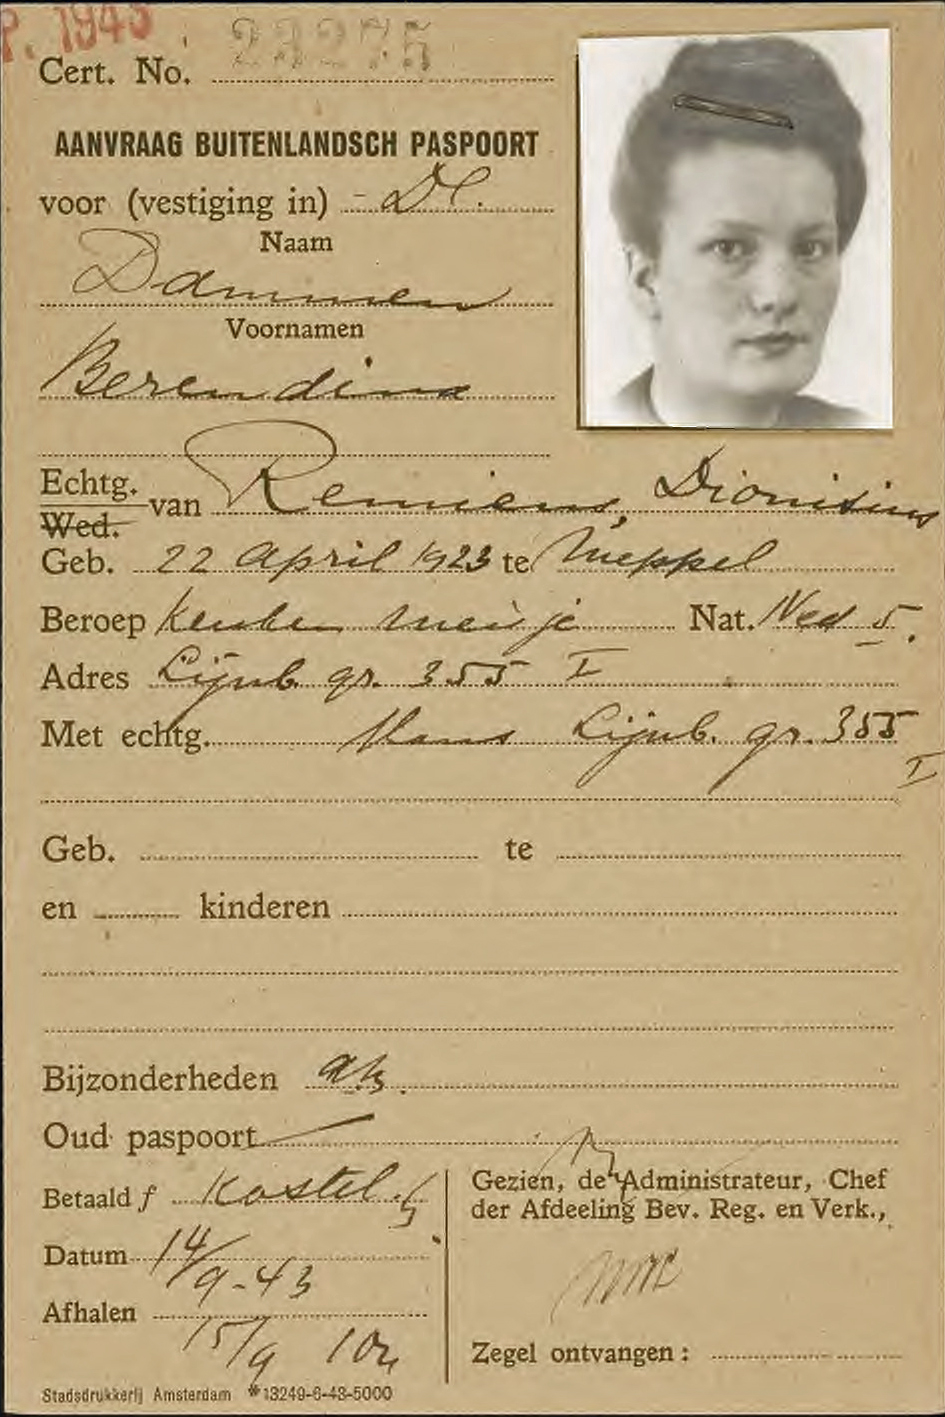 P. 1943
Cert. No. 23275
AANVRAAG BUITENLANDSCH PASPOORT
voor (vestiging in) - Dl.
Naam
Dammen
Voornamen
Berendina
Echtg. van Remiens, Dionisius
Wed.
Geb. 22 April 1923 te Meppel
Beroep Keuken meisje Nat. Ned 5.
Adres Lijnb. gr. 355 I
Met echtg. Mans Lijnb. gr. 355
I
Geb. te
en kinderen
Bijzonderheden
Oud paspoort
Betaald f Kostel.
Datum 14/9-43
Afhalen
15/9 10u
Gezien, de Administrateur, Chef
der Afdeeling Bev. Reg. en Verk.,
Zegel ontvangen :
Stadsdrukkerij Amsterdam *13249-6-43-5000